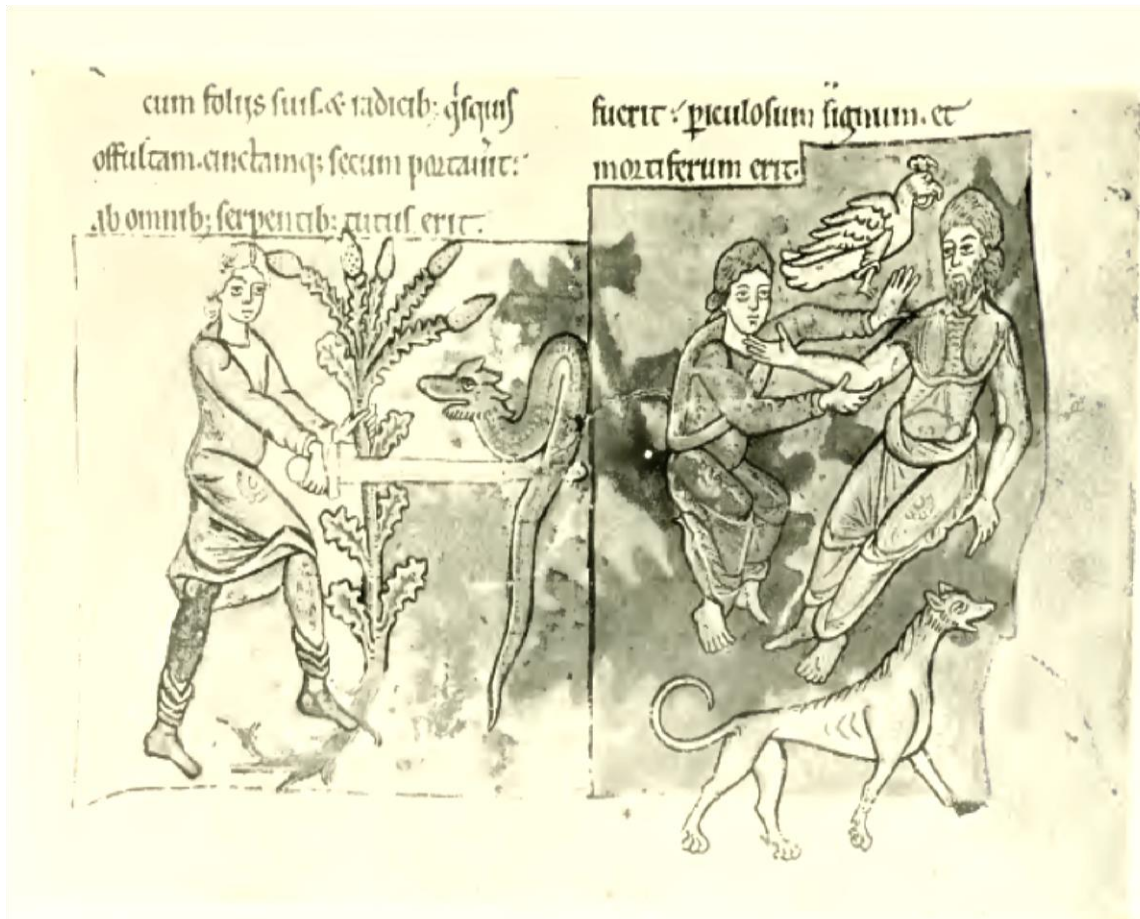 cum folijs suis. & radicib; qͥsquis
offultam. cinctamq; secum portauīt:
ab omnib; serpentib; tutus erit.
fuerit: ꝑiculosum signum. et
mortiferum erit.